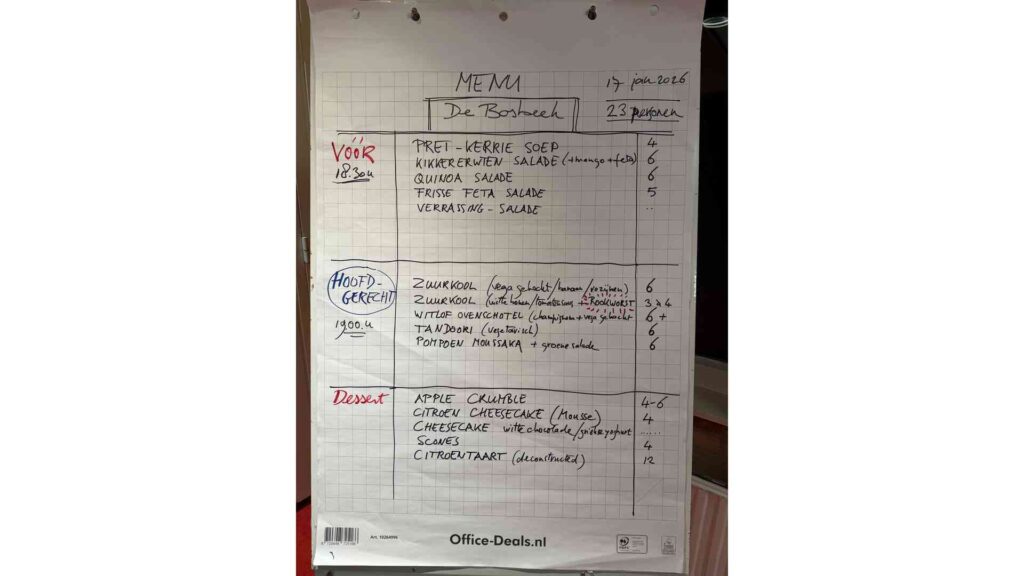 MENU
17 jan 2026
De Bosbeek
23 personen
VÓÓR
18.30u
PRET-KERRIE SOEP 4
KIKKERERWTEN SALADE (+mango+feta) 6
QUINOA SALADE 6
FRISSE FETA SALADE 5
VERRASSING-SALADE ..
HOOFD-
GERECHT
1900.u
ZUURKOOL (vega gehackt/banaan/rozijnen) 6
ZUURKOOL (witte bonen/tomatensaus + ROOKWORST 3 à 4
WITLOF OVENSCHOTEL (champignon + vega gehackt 6 +
TANDOORI (vegetarisch) 6
POMPOEN MOUSSAKA + groene salade 6
Dessert
APPLE CRUMBLE 4-6
CITROEN CHEESECAKE (Mousse) 4
CHEESECAKE witte chocolade/griekse yoghurt .....
SCONES 4
CITROENTAART (deconstructed) 12
Art. 10264996
Office-Deals.nl